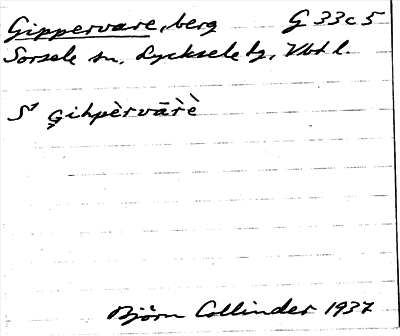 Gippervare, berg G 33c5
Sorsele sn, Lycksele lg, Vbt l.
S' Gihpèrvārè
Björn Collinder 1937